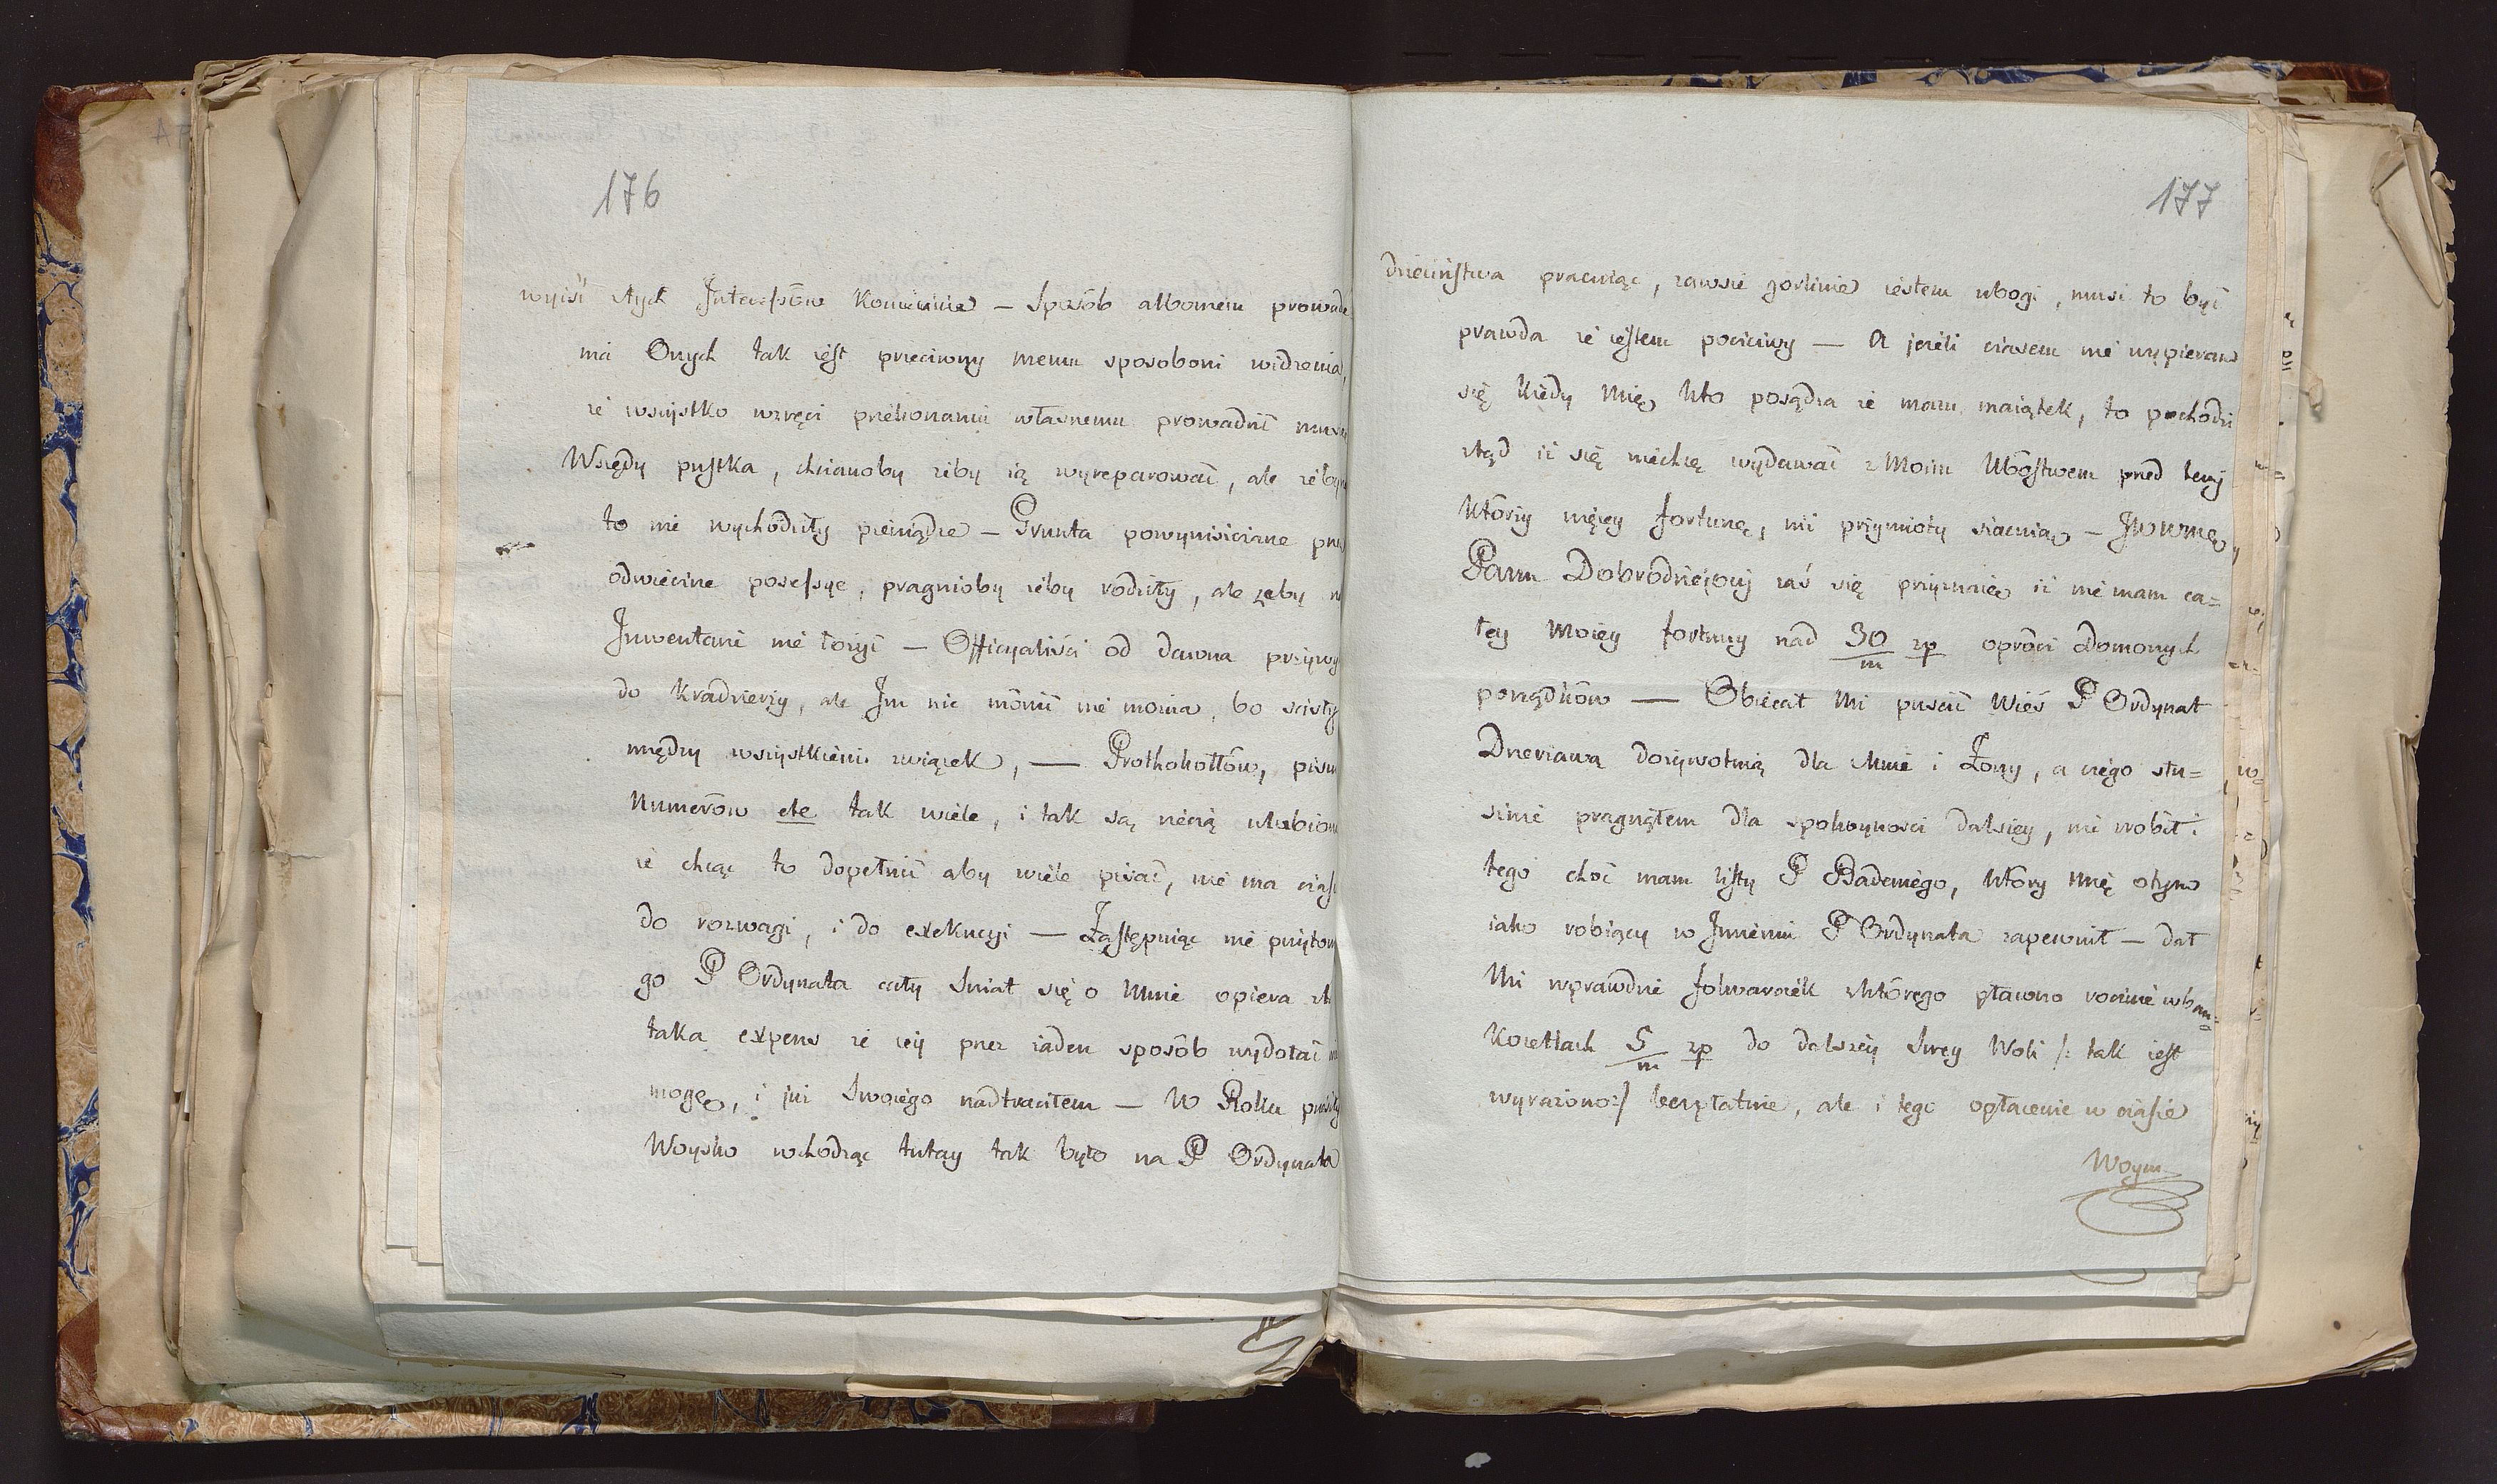 176
wyiść ztych Interessów koniecznie — Sposób albowiem prowadze
nia Onych tak iest przeciwny memu sposobowi widzenia,
że wszystko wręcz przekonaniu własnemu prowadzić muszę
Wszędy pustka, chcianoby żeby ią wyreparować, ale żeby na
to nie wychodziły pieniądze — Grunta powyniszczane przez
odwieczne possessye, pragnioby żeby rodziły, ale żeby
Inwentarze nie łożyć — Officyaliści od dawna przywy
do kradzieży, ale Im nic mówić nie można, bo ścisły
między wszystkiemi związek, — Prothokołłów, pism
Numerów etc tak wiele, i tak są rzeczą ulubioną
że chcąc to dopełnić aby wiele pisać, nie ma czasu
do rozwagi, i do exekucyi — Zastępuiąc nie przytom
go P Ordynata cały Świat się o Mnie opiera zt
taka expens że iey przez żaden sposób wydołać nie
mogę, i już Swoiego nadtraciłem — W Roku przeszły
Woysko wchodząc tutay tak było na P Ordynata
177
dzieciństwa pracuiąc, zawsze gorliwie iestem ubogi, musi to być
prawda że iestem poczciwy — A jeżeli czasem nie wypieram
się kiedy Mię kto posądza że mam maiątek, to pochodzi
ztąd iż się niechcę wydawać z Moim Ubóstwem przed temi
którzy więcey fortunę, niż przymioty szacuią — JWWMę
Panu Dobrodziejowi zaś się przyznaię iż nie mam ca=
łey Moiey fortuny nad 30/m zp oprócz Domowych
porządków — Obiecał Mi puścić Wieś P Ordynat
Dzierżawą dożywotnią dla Mnie i Żony, a czego słu=
sznie pragnąłem dla spokoyności dalszey, nie zrobił i
tego choć mam listy P Badeniego, który Mię otym
iako robiący w Imieniu P Ordynata zapewnił — dał
Mi wprawdzie folwarczek zktórego płacono rocznie w ban=
kocetlach 5/m zp do dalszey Swey Woli /: tak iest
wyrażono :/ bezpłatnie, ale i tego opłacenie w czasie
Woyn